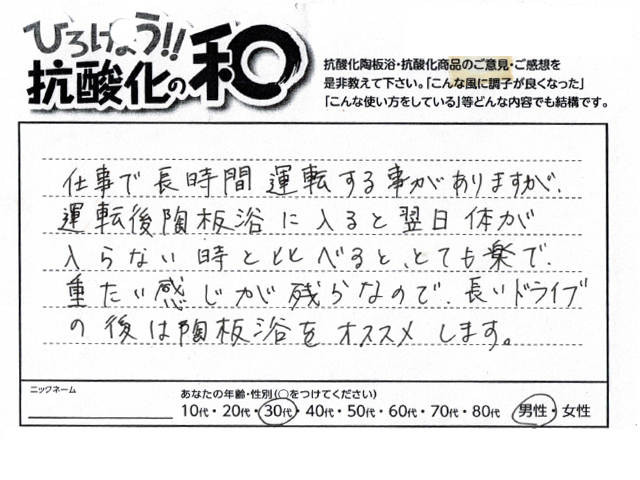 ひろげよう!!
抗酸化の和
抗酸化陶板浴・抗酸化商品のご意見・ご感想を
是非教えて下さい。「こんな風に調子が良くなった」
「こんな使い方をしている」等どんな内容でも結構です。
仕事で長時間運転する事がありますが、
運転後陶板浴に入ると翌日体が
入らない時とくらべると、とても楽で、
重たい感じが残らなので、長いドライブ
の後は陶板浴をオススメします。
ニックネーム
あなたの年齢・性別(○をつけてください)
10代・20代・30代・40代・50代・60代・70代・80代 男性・女性